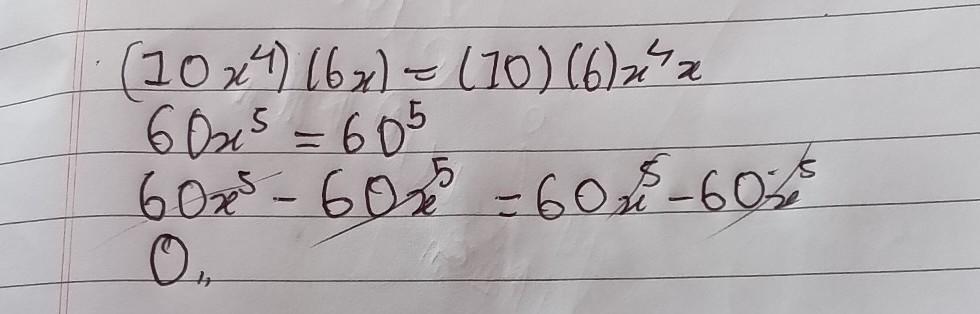 (10x⁴)(6x) = (10)(6)x⁴x
60x⁵ = 60⁵
60x⁵ - 60x⁵ = 60x⁵ - 60x⁵
0,,